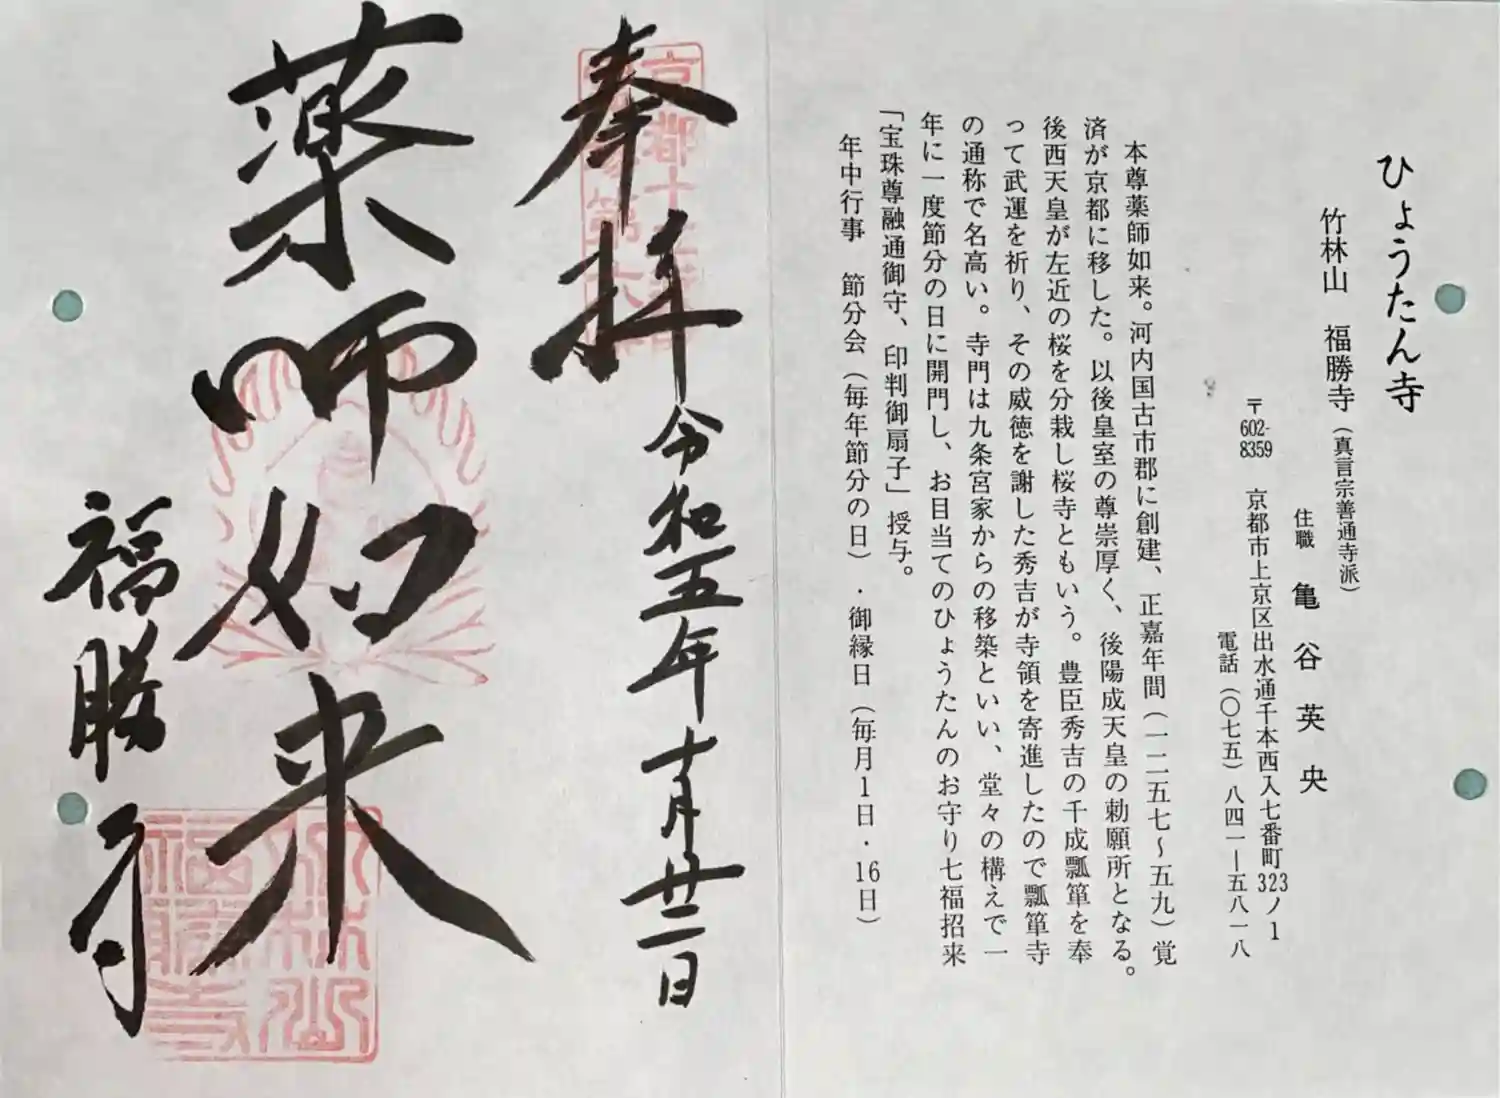 ひょうたん寺
竹林山　福勝寺（真言宗善通寺派）
住職　亀谷英央
〒602-8359　京都市上京区出水通千本西入七番町323ノ1
電話（〇七五）八四一ー五八一八
本尊薬師如来。河内国古市郡に創建、正嘉年間（一二五七〜五九）覚
済が京都に移した。以後皇室の尊崇厚く、後陽成天皇の勅願所となる。
後西天皇が左近の桜を分栽し桜寺ともいう。豊臣秀吉の千成瓢箪を奉
って武運を祈り、その威徳を謝した秀吉が寺領を寄進したので瓢箪寺
の通称で名高い。寺門は九条宮家からの移築といい、堂々の構えで一
年に一度節分の日に開門し、お目当てのひょうたんのお守り七福招来
「宝珠尊融通御守、印判御扇子」授与。
年中行事　節分会（毎年節分の日）・御縁日（毎月1日・16日）
奉拝
令和五年十月廿二日
薬師如来
福勝寺
竹林山
福勝寺